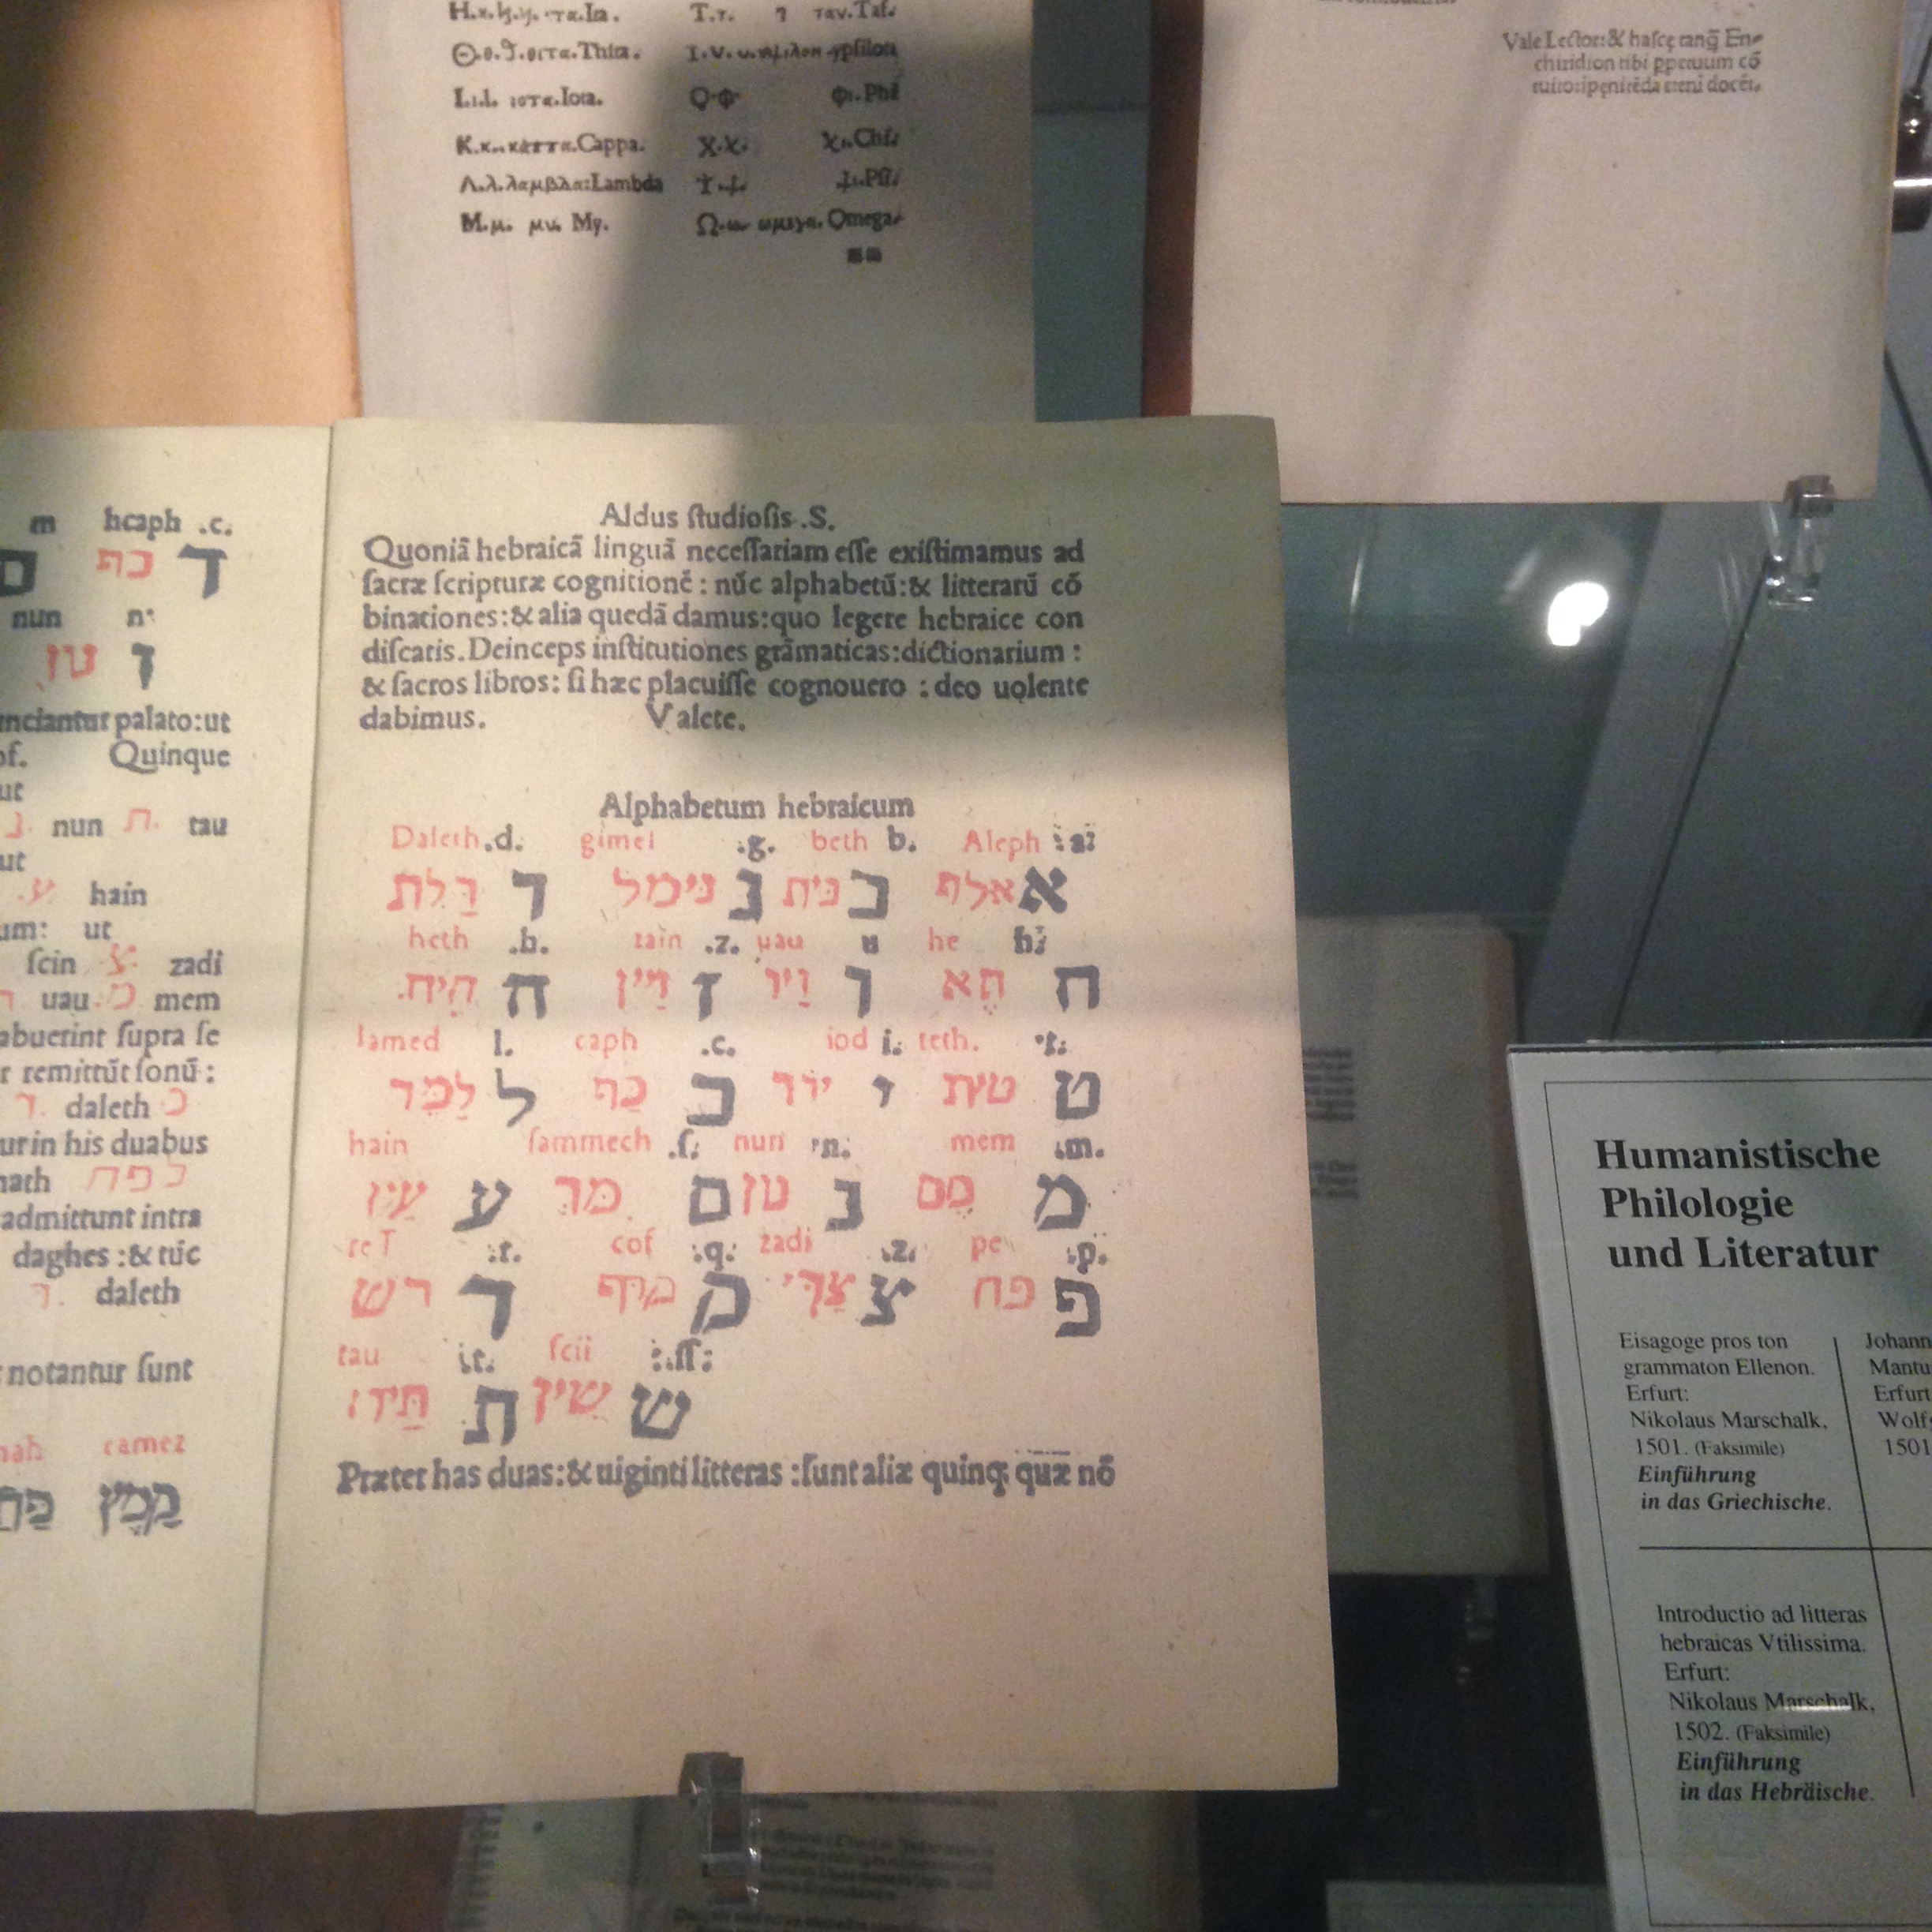 Θ.θ.ϑ.θιτα.Thita.
Ι.ι.Ι. ιοτα.Iota.
Κ.κ. καππα.Cappa.
Λ.λ.λαμβδα:Lambda
Μ.μ. μυ. My.
Τ.τ. ταυ.Taf.
ypſilon
Φ φι.Phi
Χ.χ. χι.Chi
Pſi
Ω.ω ωμεγα. Omega
Vale Lector: & haſce tanq̃ En-
chiridion tibi
m hcaph .c.
ם כף ך
nun n
נון ן
palato:ut
of. Quinque
ut
נ. nun ת. tau
ut
ע. hain
um: ut
ſcin צ. zadi
uau מ mem
abuerint ſupra ſe
r remittũt ſonũ :
ד. daleth כ
ur in his duabus
admittunt intra
daghes :& túc
ד. daleth
notantur ſunt
camez
קמץ
Aldus ſtudioſis .S.
Quoniã hebraicã linguã neceſſariam eſſe exiſtimamus ad
ſacræ ſcripturæ cognitionẽ : nũc alphabetũ:& litterarũ cõ
binationes:& alia quedã damus:quo legere hebraice con
diſcatis. Deinceps inſtitutiones grãmaticas:dictionarium :
& ſacros libros: ſi hæc placuiſſe cognouero : deo uolente
dabimus. Valete.
Alphabetum hebraicum
Daleth .d. gimel .g. beth b. Aleph :a:
א אלף ב בית ג גימל ד דלת
heth .h. zain .z. uau u he h:
ה הא ו ויו ז זין ח חית
lamed l. caph .c. iod i. teth. .t.
ט טית י יוד כ כף ל למד
hain ſammech .ſ. nun .n. mem .m.
מ מם נ נון ס סמך ע עין
reſ .r. cof .q. zadi .z. pe .p.
פ פה צ צדי ק קוף ר ריש
tau .t. ſcii .ſſ.
ש שין ת תיו
Præter has duas:& uiginti litteras :ſunt aliæ quinq; quæ nõ
Humanistische
Philologie
und Literatur
Eisagoge pros ton
grammaton Ellenon.
Erfurt:
Nikolaus Marschalk,
1501. (Faksimile)
Einführung
in das Griechische.
Johann
Mantu
Erfurt
Wolfg
1501
Introductio ad litteras
hebraicas Vtilissima.
Erfurt:
Nikolaus Marschalk,
1502. (Faksimile)
Einführung
in das Hebräische.